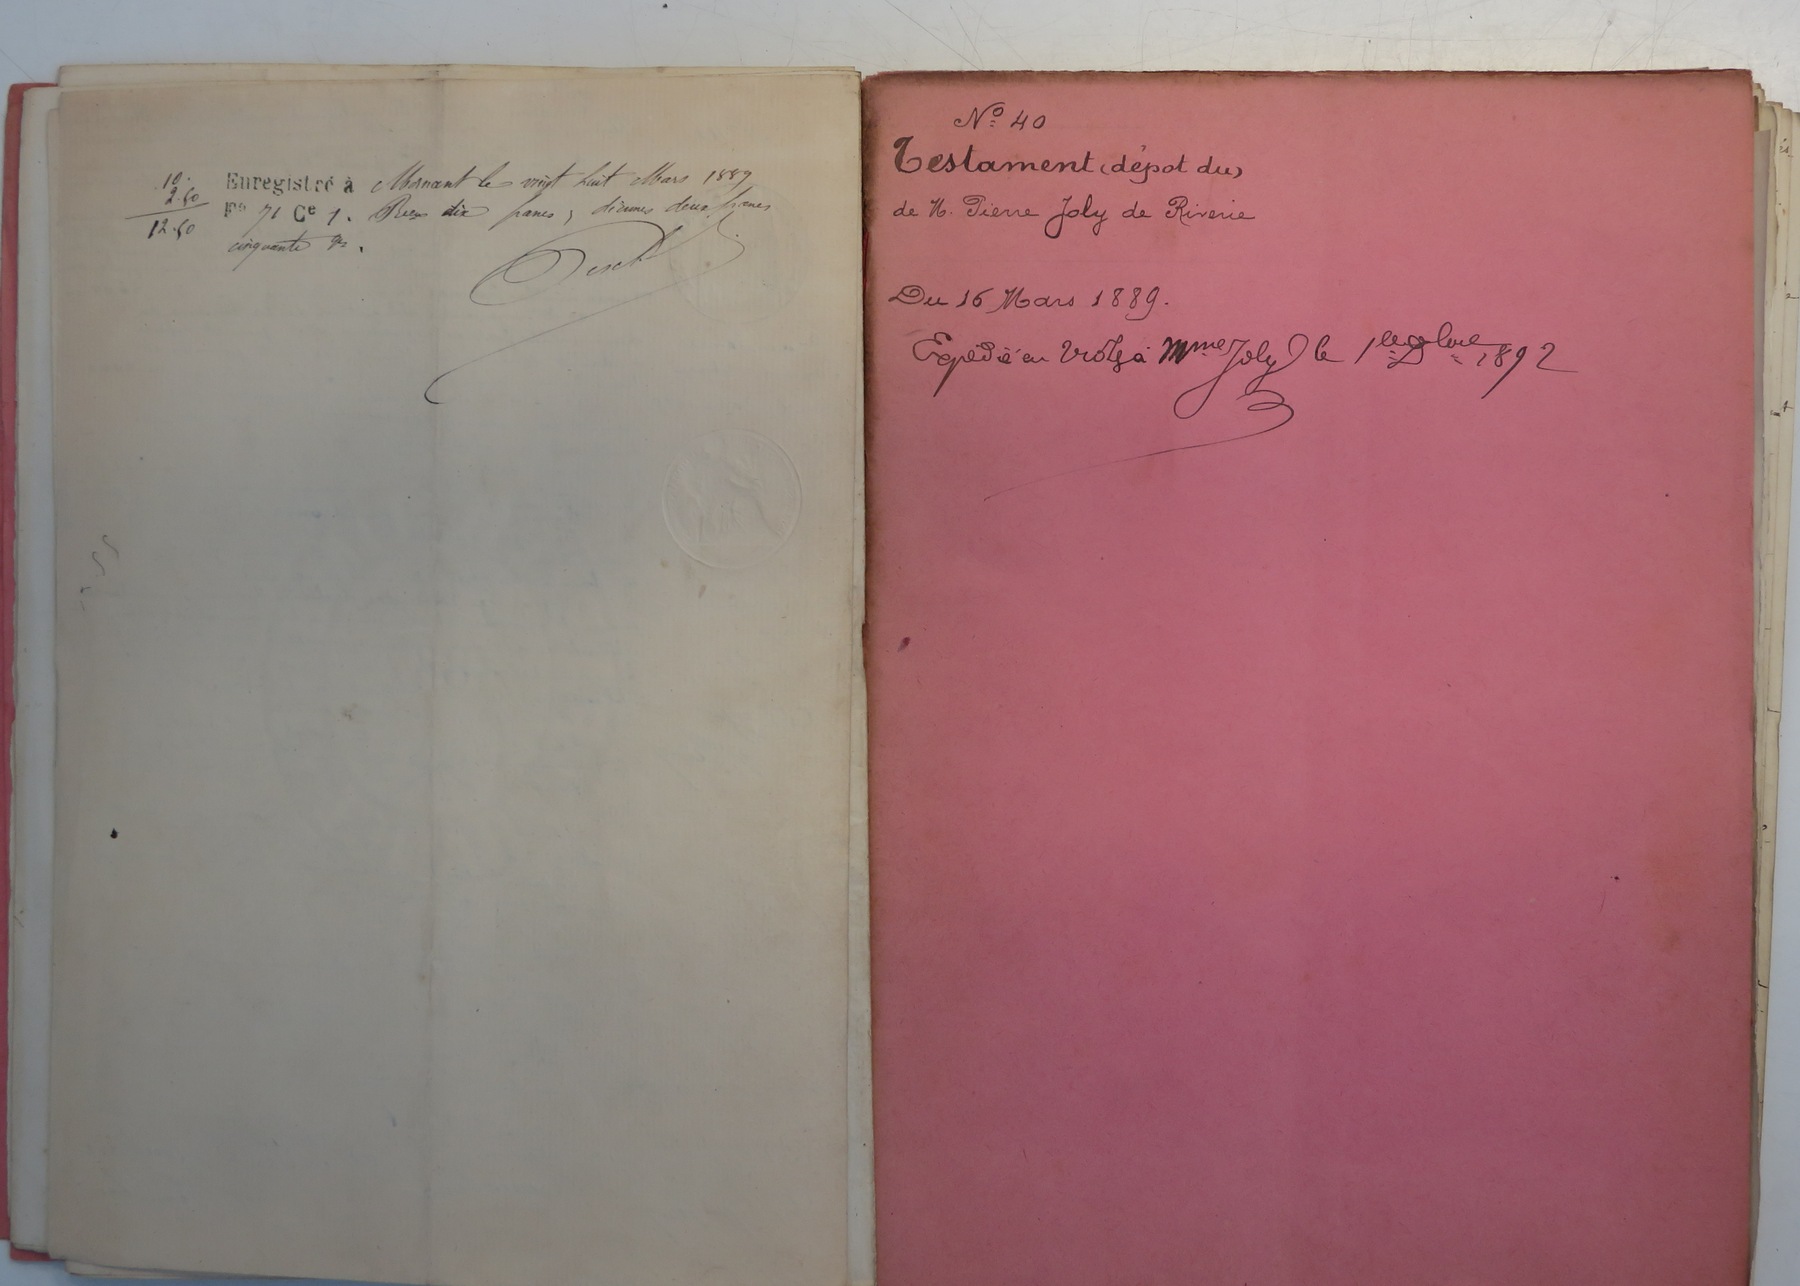 10.
2.50
12.50
Enregistré à Mornant le vingt huit Mars 1889
F° 71 Ce 7. Reçu dix francs, décimes deux francs
cinquante
N° 40
Testament (dépot du)
de M. Pierre Joly de Riverie
Du 16 Mars 1889.
Expédié en à Mme Joly le 1er 1892